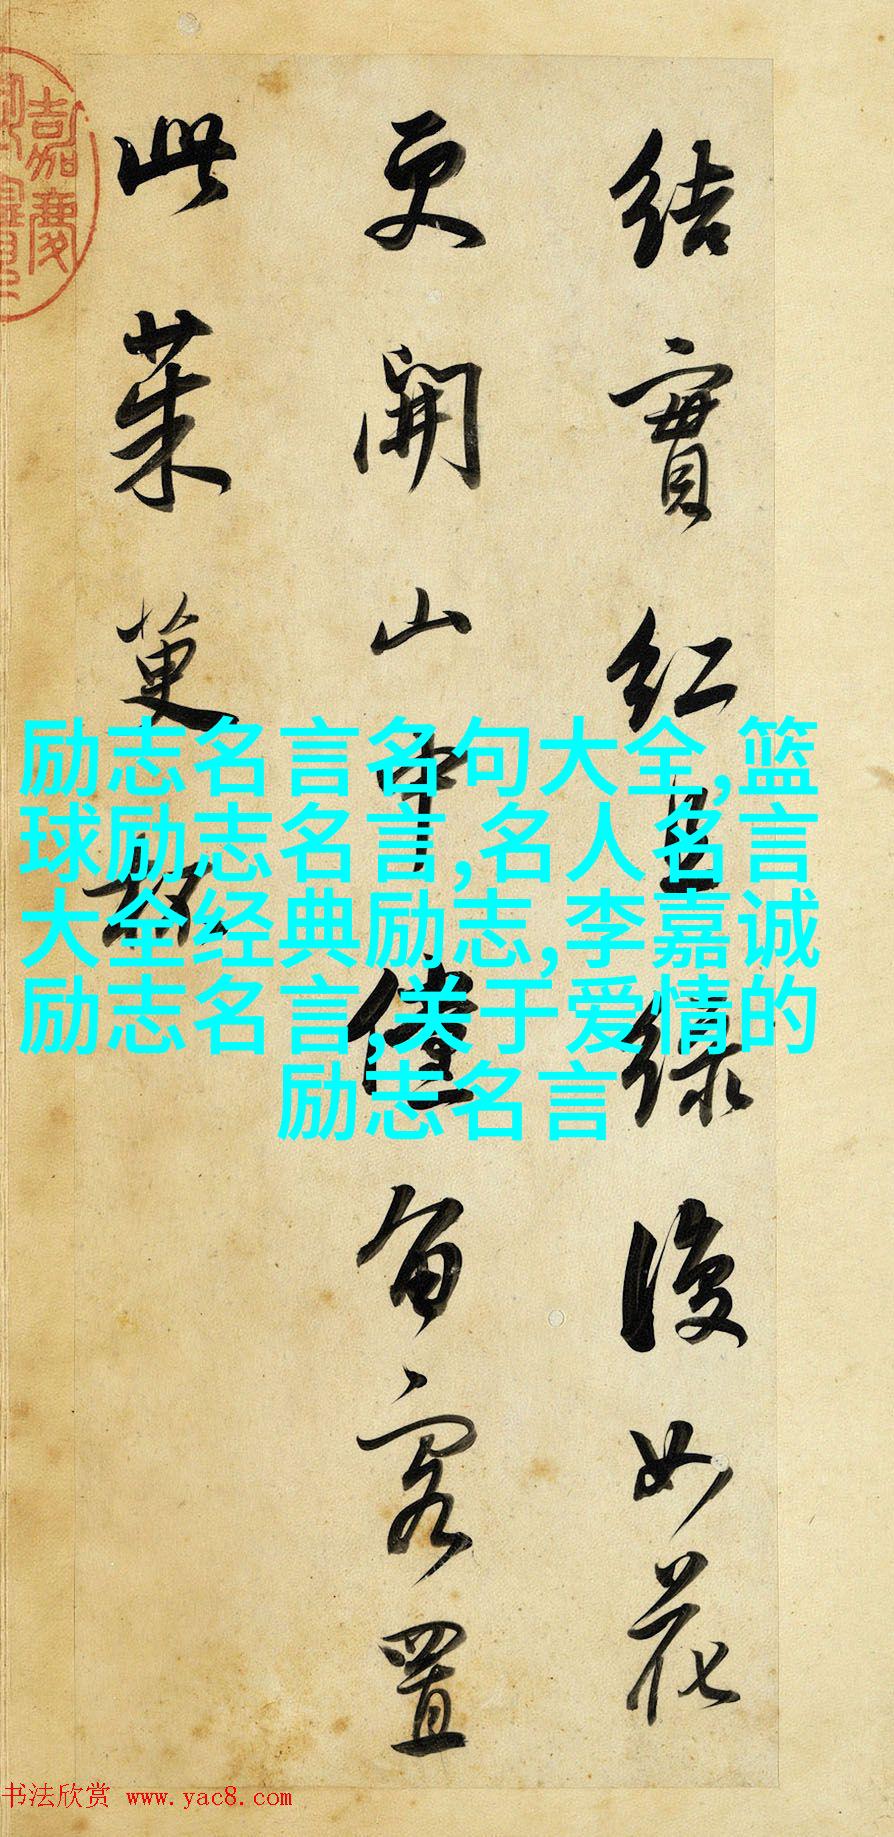 結實紅且綠復如花
更開山中儻留客置
此茱萸
嘉慶
励志名言名句大全,篮
球励志名言,名人名言
大全经典励志,李嘉诚
励志名言,关于爱情的
励志名言
书法欣赏 www.yac8.com